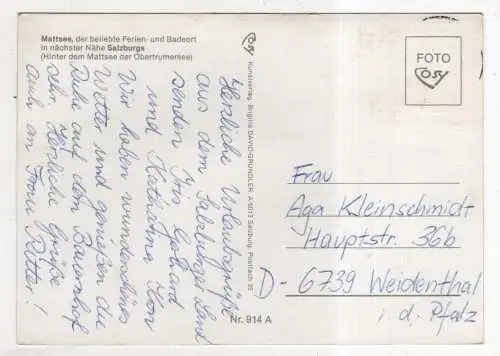 Mattsee, der beliebte Ferien- und Badeort
in nächster Nähe Salzburgs
(Hinter dem Mattsee der Obertrumersee)
Herzliche Urlaubsgrüße
aus dem Salzburger Land
senden Iris Gerhard
und Katharina
Wir haben wunderschönes
Wetter und genießen die
Ruhe auf dem Bauernhof
sehr. Herzliche Grüße
auch an Frau Ritter!
COSY
Kunstverlag, Brigitte DAVID-GRÜNDLER A 5013 Salzburg, Postfach 35
Nr. 914 A
FOTO
COSY
Frau
Aga Kleinschmidt
Hauptstr. 36b
D- 6739 Weidenthal
i. d. Pfalz